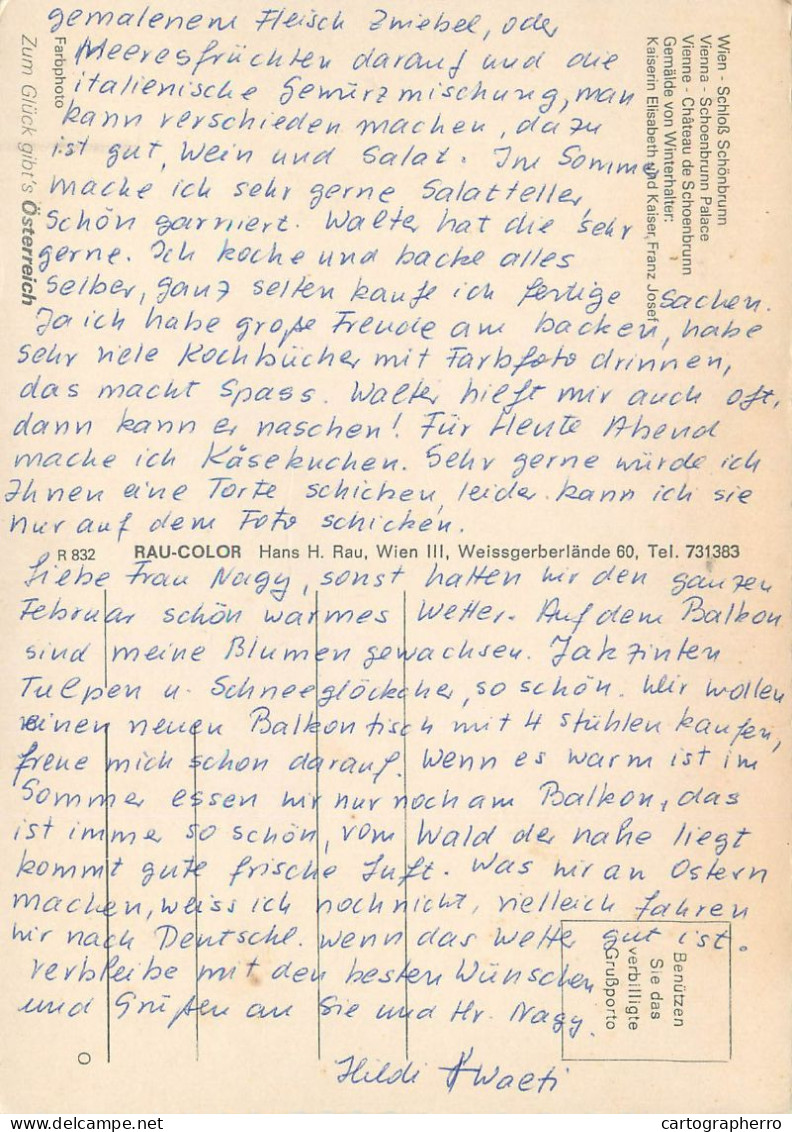 gemalenem Fleisch Zwiebel, oder
Meeresfrüchten darauf und die
italienische Gewürzmischung, man
kann verschieden machen, dazu
ist gut, Wein und Salat. Im Sommer
mache ich sehr gerne Salatteller,
schön garniert. Walter hat die sehr
gerne. Ich koche und backe alles
selber, ganz selten kaufe ich fertige Sachen.
Ja ich habe große Freude am backen, habe
sehr viele Kochbücher mit Farbfoto drinnen,
das macht Spass. Walter hilft mir auch oft,
dann kann er naschen! Für Heute Abend
mache ich Käsekuchen. Sehr gerne würde ich
Ihnen eine Torte schicken, leider kann ich sie
nur auf dem Foto schicken.
R 832 RAU-COLOR Hans H. Rau, Wien III, Weissgerberlände 60, Tel. 731383
Liebe Frau Nagy, sonst hatten wir den ganzen
Februar schön warmes Wetter. Auf dem Balkon
sind meine Blumen gewachsen. Jakzinten
Tulpen u. Schneeglöckcher, so schön. Wir wollen
einen neuen Balkontisch mit 4 Stühlen kaufen,
freue mich schon darauf. Wenn es warm ist im
Sommer essen wir nur noch am Balkon, das
ist immer so schön, vom Wald der nahe liegt
kommt gute frische Luft. Was wir an Ostern
machen, weiss ich noch nicht, vielleich fahren
wir nach Deutschl. wenn das Wetter gut ist.
Verbleibe mit den besten Wünschen
und Grüßen an Sie und Hr. Nagy.
Hildi Waeti
Wien - Schloß Schönbrunn
Vienna - Schoenbrunn Palace
Vienne - Château de Schoenbrunn
Gemälde von Winterhalter:
Kaiserin Elisabeth und Kaiser Franz Josef
Farbphoto
Zum Glück gibt's Österreich
Benützen
Sie das
verbilligte
Grußporto
cartographerro